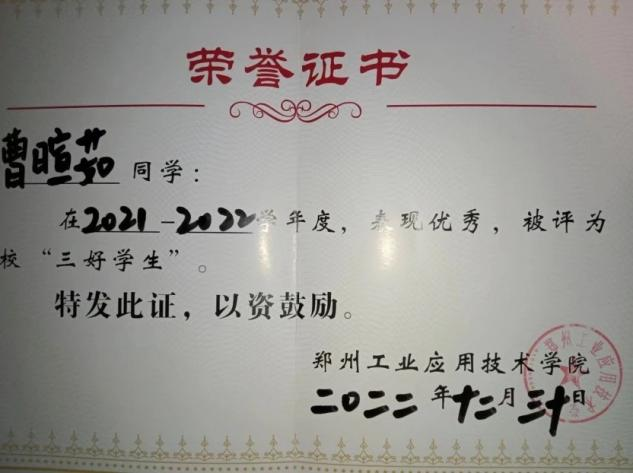 荣誉证书
曹暄茹 同学：
在2021-2022学年度，表现优秀，被评为
校“三好学生”。
特发此证，以资鼓励。
郑州工业应用技术学院
二〇二二年十二月三十日
郑州工业应用技术学院